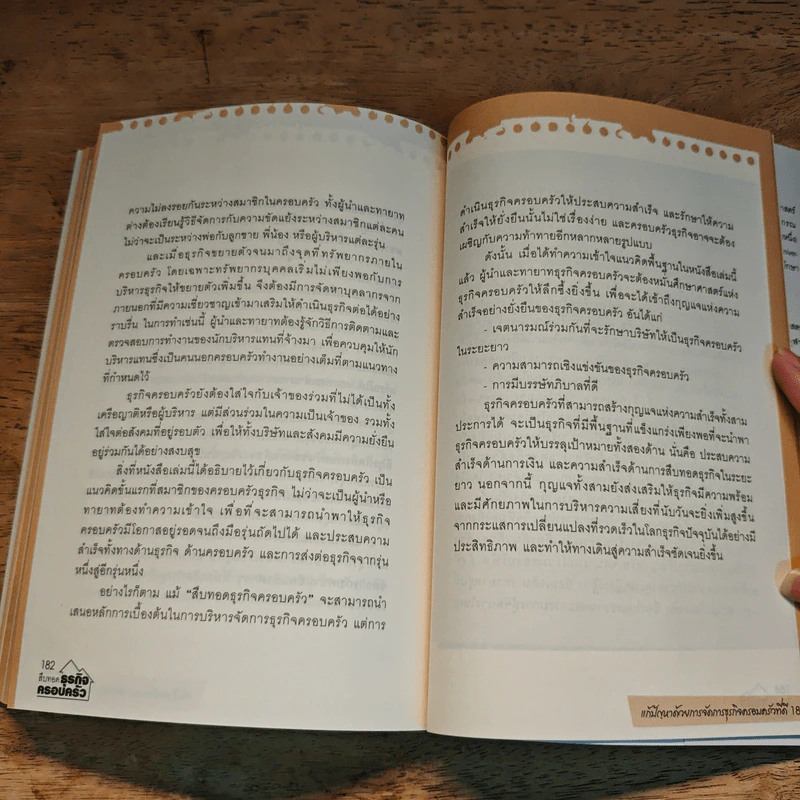 ความไม่ลงรอยกันระหว่างสมาชิกในครอบครัว ทั้งผู้นำและทายาท
ต่างต้องเรียนรู้วิธีจัดการกับความขัดแย้งระหว่างสมาชิกแต่ละคน
ไม่ว่าจะเป็นระหว่างพ่อกับลูกชาย พี่น้อง หรือผู้บริหารแต่ละรุ่น
และเมื่อธุรกิจขยายตัวจนมาถึงจุดที่ทรัพยากรภายใน
ครอบครัว โดยเฉพาะทรัพยากรบุคคลเริ่มไม่เพียงพอกับการ
บริหารธุรกิจให้ขยายตัวเพิ่มขึ้น จึงต้องมีการจัดหาบุคลากรจาก
ภายนอกที่มีความเชี่ยวชาญเข้ามาเสริมให้ดำเนินธุรกิจต่อได้อย่าง
ราบรื่น ในการทำเช่นนี้ ผู้นำและทายาทต้องรู้จักวิธีการติดตามและ
ตรวจสอบการทำงานของนักบริหารแทนที่จ้างมา เพื่อควบคุมให้นัก
บริหารแทนซึ่งเป็นคนนอกครอบครัวทำงานอย่างเต็มที่ตามแนวทาง
ที่กำหนดไว้
ธุรกิจครอบครัวยังต้องใส่ใจกับเจ้าของร่วมที่ไม่ได้เป็นทั้ง
เครือญาติหรือผู้บริหาร แต่มีส่วนร่วมในความเป็นเจ้าของ รวมทั้ง
ใส่ใจต่อสังคมที่อยู่รอบตัว เพื่อให้ทั้งบริษัทและสังคมมีความยั่งยืน
อยู่ร่วมกันได้อย่างสงบสุข
สิ่งที่หนังสือเล่มนี้ได้อธิบายไว้เกี่ยวกับธุรกิจครอบครัว เป็น
แนวคิดขั้นแรกที่สมาชิกของครอบครัวธุรกิจ ไม่ว่าจะเป็นผู้นำหรือ
ทายาทต้องทำความเข้าใจ เพื่อที่จะสามารถนำพาให้ธุรกิจ
ครอบครัวมีโอกาสอยู่รอดจนถึงมือรุ่นถัดไปได้ และประสบความ
สำเร็จทั้งทางด้านธุรกิจ ด้านครอบครัว และการส่งต่อธุรกิจจากรุ่น
หนึ่งสู่อีกรุ่นหนึ่ง
อย่างไรก็ตาม แม้ “สืบทอดธุรกิจครอบครัว” จะสามารถนำ
เสนอหลักการเบื้องต้นในการบริหารจัดการธุรกิจครอบครัว แต่การ
182
สืบทอด ธุรกิจ
ครอบครัว
ดำเนินธุรกิจครอบครัวให้ประสบความสำเร็จ และรักษาให้ความ
สำเร็จให้ยั่งยืนนั้นไม่ใช่เรื่องง่าย และครอบครัวธุรกิจอาจจะต้อง
เผชิญกับความท้าทายอีกหลากหลายรูปแบบ
ดังนั้น เมื่อได้ทำความเข้าใจแนวคิดพื้นฐานในหนังสือเล่มนี้
แล้ว ผู้นำและทายาทธุรกิจครอบครัวจะต้องหมั่นศึกษาศาสตร์แห่ง
ธุรกิจครอบครัวให้ลึกซึ้งยิ่งขึ้น เพื่อจะได้เข้าถึงกุญแจแห่งความ
สำเร็จอย่างยั่งยืนของธุรกิจครอบครัว อันได้แก่
- เจตนารมณ์ร่วมกันที่จะรักษาบริษัทให้เป็นธุรกิจครอบครัว
ในระยะยาว
- ความสามารถเชิงแข่งขันของธุรกิจครอบครัว
- การมีบรรษัทภิบาลที่ดี
ธุรกิจครอบครัวที่สามารถสร้างกุญแจแห่งความสำเร็จทั้งสาม
ประการได้ จะเป็นธุรกิจที่มีพื้นฐานที่แข็งแกร่งเพียงพอที่จะนำพา
ธุรกิจครอบครัวให้บรรลุเป้าหมายทั้งสองด้าน นั่นคือ ประสบความ
สำเร็จด้านการเงิน และความสำเร็จด้านการสืบทอดธุรกิจในระยะ
ยาว นอกจากนี้ กุญแจทั้งสามยังส่งเสริมให้ธุรกิจมีความพร้อม
และมีศักยภาพในการบริหารความเสี่ยงที่นับวันจะยิ่งเพิ่มสูงขึ้น
จากกระแสการเปลี่ยนแปลงที่รวดเร็วในโลกธุรกิจปัจจุบันได้อย่างมี
ประสิทธิภาพ และทำให้ทางเดินสู่ความสำเร็จชัดเจนยิ่งขึ้น
แก้ปัญหาด้วยการจัดการธุรกิจครอบครัวที่ดี 18